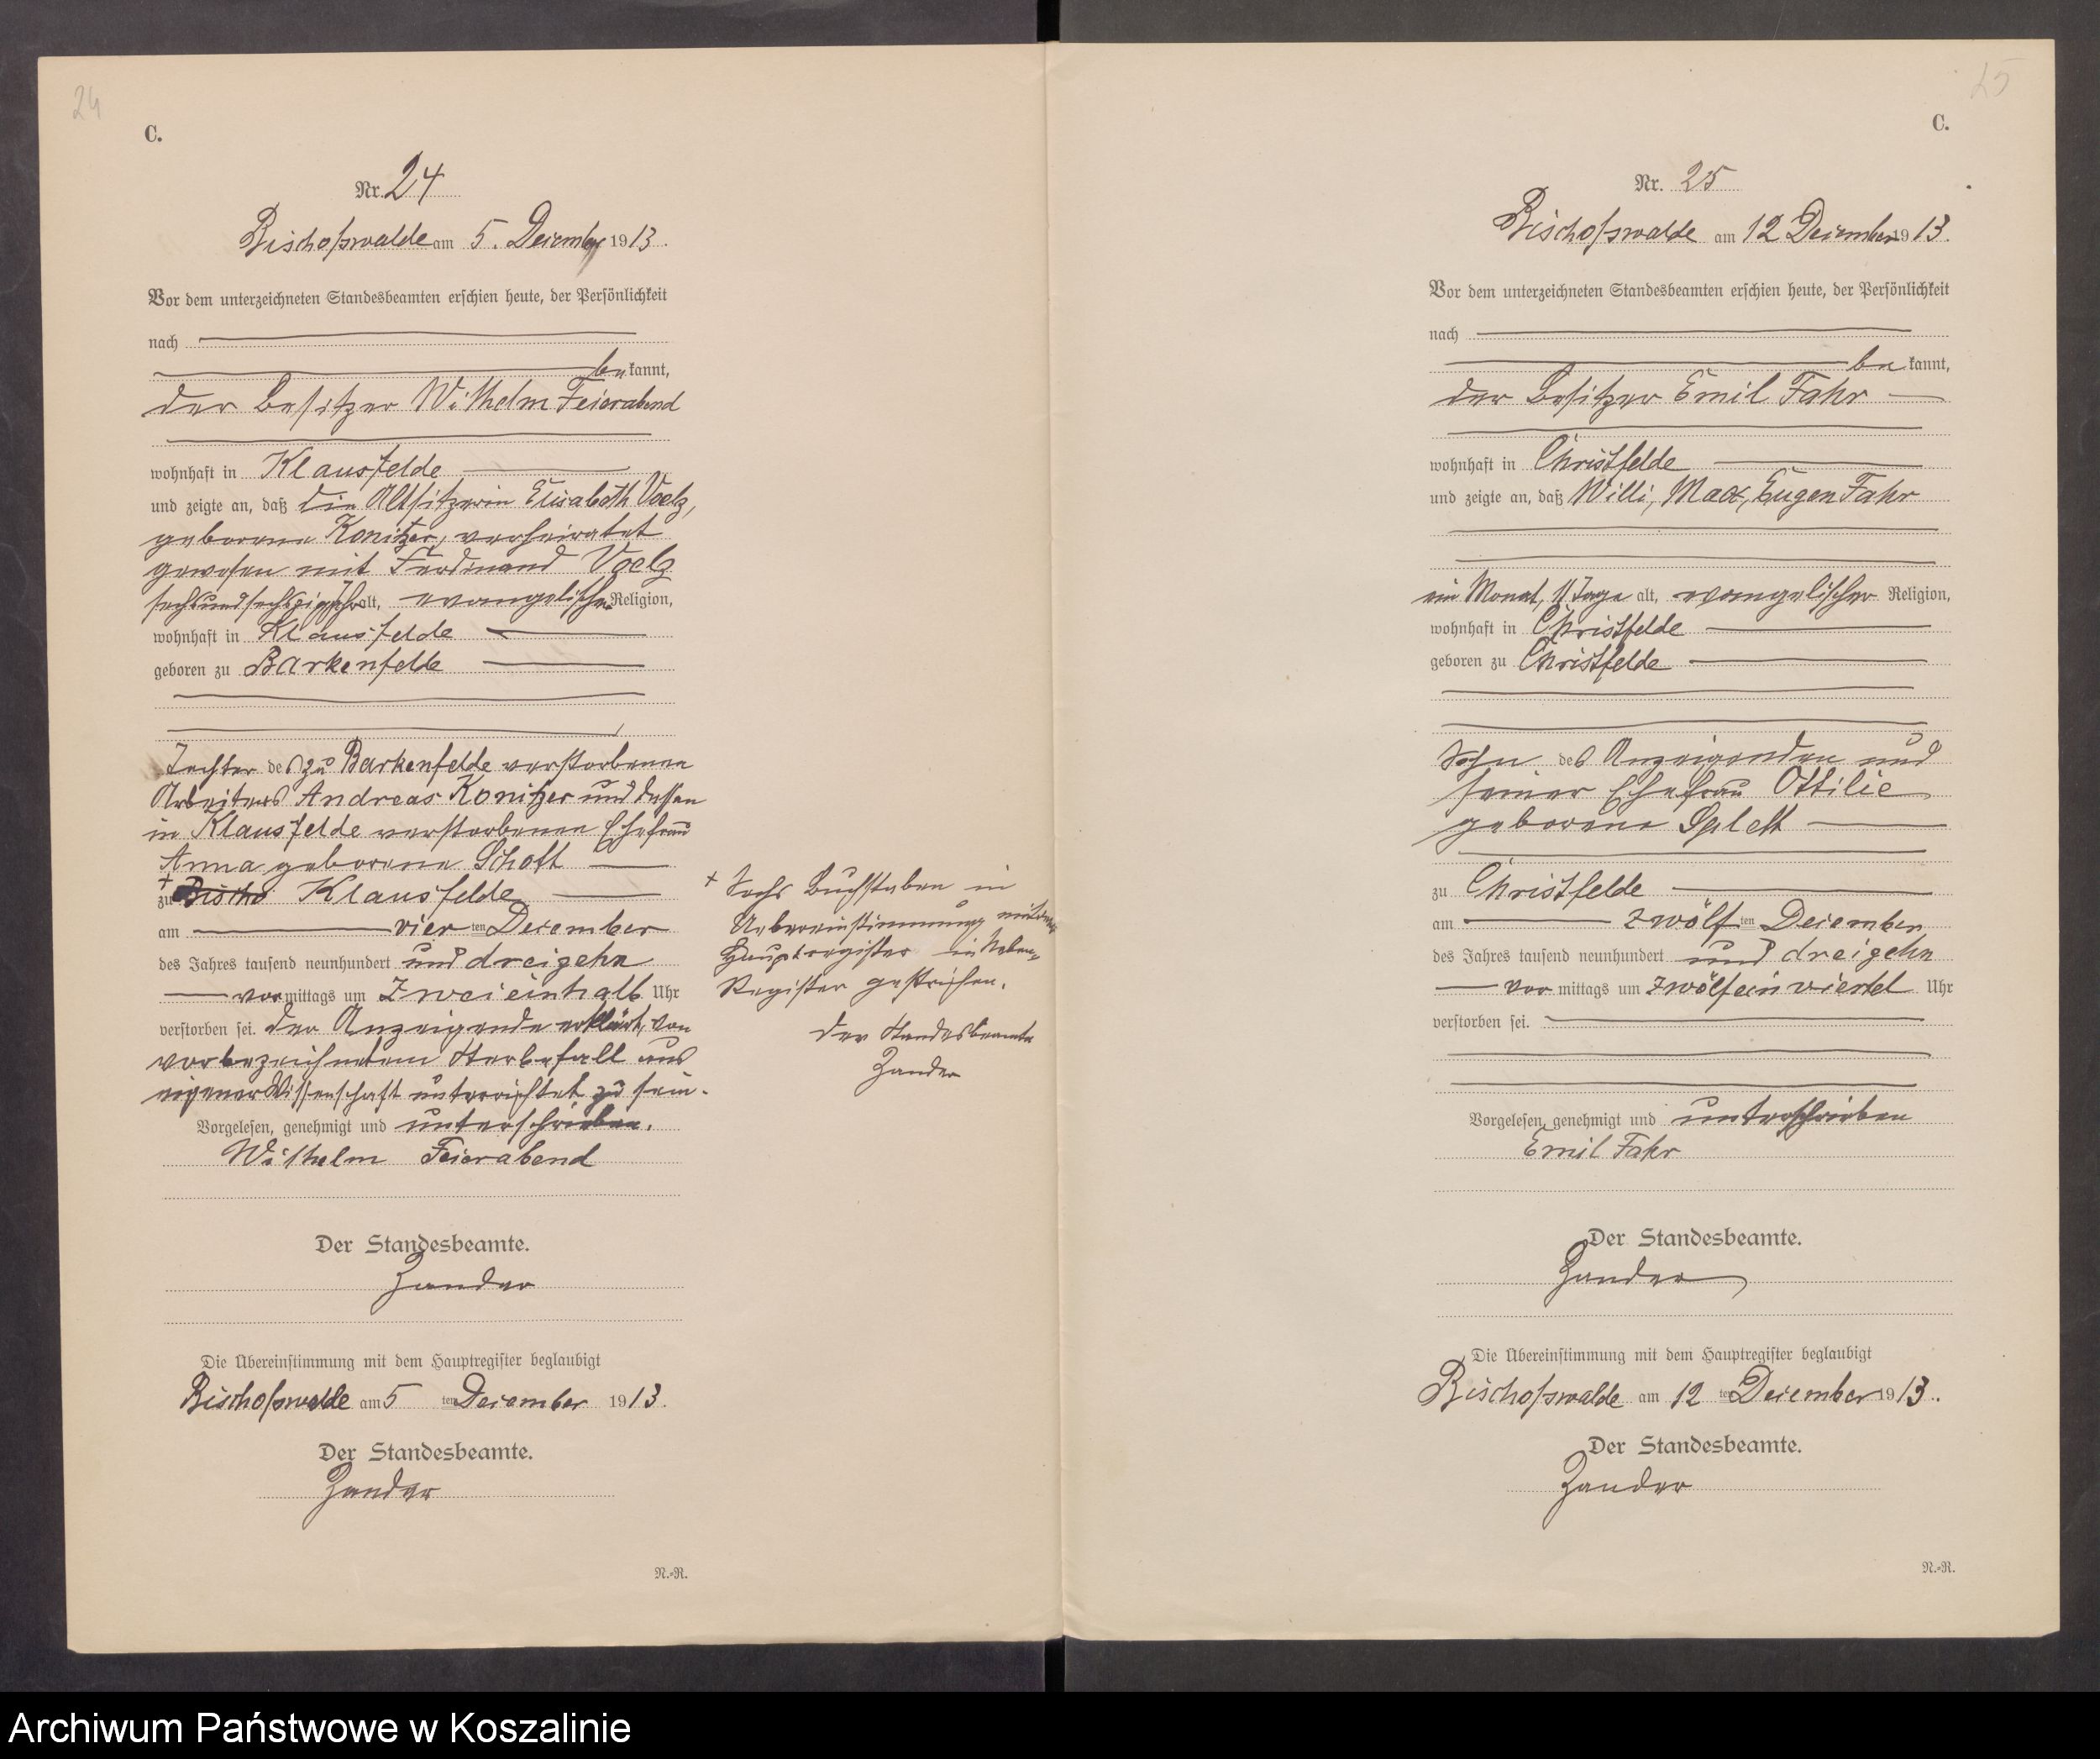 24
C.
Nr. 24
Bischofswalde am 5. Dezember 1913.
Vor dem unterzeichneten Standesbeamten erschien heute, der Persönlichkeit
nach
be kannt,
der Besitzer Wilhelm Feierabend
wohnhaft in Klausfelde
und zeigte an, daß die Altsitzerin Elisabeth Voelz,
geborene Konitzer, verheiratet
gewesen mit Ferdinand Voelz
sechsundsechzig Jahr alt, evangelischer Religion,
wohnhaft in Klausfelde
geboren zu Barkenfelde
Tochter des zu Barkenfelde verstorbenen
Arbeiters Andreas Konitzer und dessen
in Klausfelde verstorbenen Ehefrau
Anna geborene Schott
+
zu Bischo Klausfelde
am vier ten Dezember
des Jahres tausend neunhundert und dreizehn
vor mittags um Zweieinhalb Uhr
verstorben sei. Der Anzeigende erklärt, von
vorbezeichnetem Sterbefall aus
eigener Wissenschaft unterrichtet zu sein.
Vorgelesen, genehmigt und unterschrieben.
Wilhelm Feierabend
Der Standesbeamte.
Zander
Die Übereinstimmung mit dem Hauptregister beglaubigt
Bischofswalde am 5 ten Dezember 1913.
Der Standesbeamte.
Zander
N.-R.
+ Sechs Buchstaben in
Uebereinstimmung mit dem
Hauptregister im Neben-
Register gestrichen.
Der Standesbeamte
Zander
25
C.
Nr. 25
Bischofswalde am 12 Dezember 1913.
Vor dem unterzeichneten Standesbeamten erschien heute, der Persönlichkeit
nach
be kannt,
der Besitzer Emil Fahr
wohnhaft in Christfelde
und zeigte an, daß Willi, Max, Eugen Fahr
ein Monat, 11 Tage alt, evangelischer Religion,
wohnhaft in Christfelde
geboren zu Christfelde
Sohn des Anzeigenden und
seiner Ehefrau Ottilie
geborene Splett
zu Christfelde
am zwölf ten Dezember
des Jahres tausend neunhundert und dreizehn
vor mittags um zwölfeinviertel Uhr
verstorben sei.
Vorgelesen, genehmigt und unterschrieben
Emil Fahr
Der Standesbeamte.
Zander
Die Übereinstimmung mit dem Hauptregister beglaubigt
Bischofswalde am 12 ten Dezember 1913.
Der Standesbeamte.
Zander
N.-R.
Archiwum Państwowe w Koszalinie